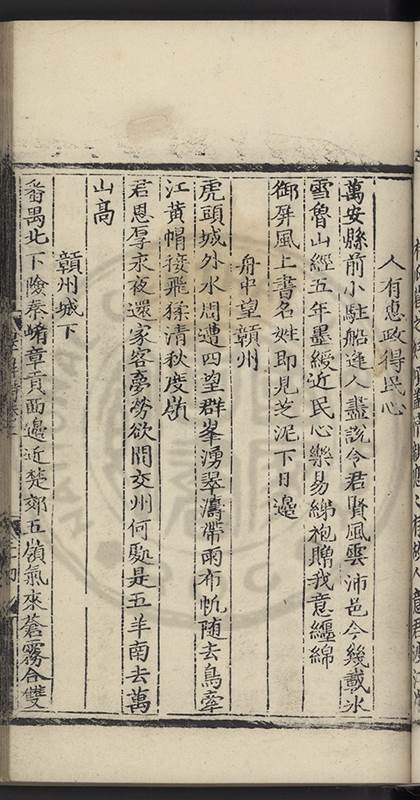 人有惠政得民心
萬安縣前小駐船逢人盡說令君賢風雲沛邑今幾載氷
雪魯山經五年墨綬近民心樂易綈袍贈我意纏綿
御屏風上書名姓即見芝泥下日邊
舟中望贛州
虎頭城外水周遭四望群峯湧翠濤帶雨布帆隨去鳥牽
江黃帽接飛猱清秋度嶺
君恩厚永夜還家客夢勞欲問交州何處是五羊南去萬
山高
贛州城下
番禺北下險秦崤章貢西邊近楚郊五嶺氣來蒼霧合雙